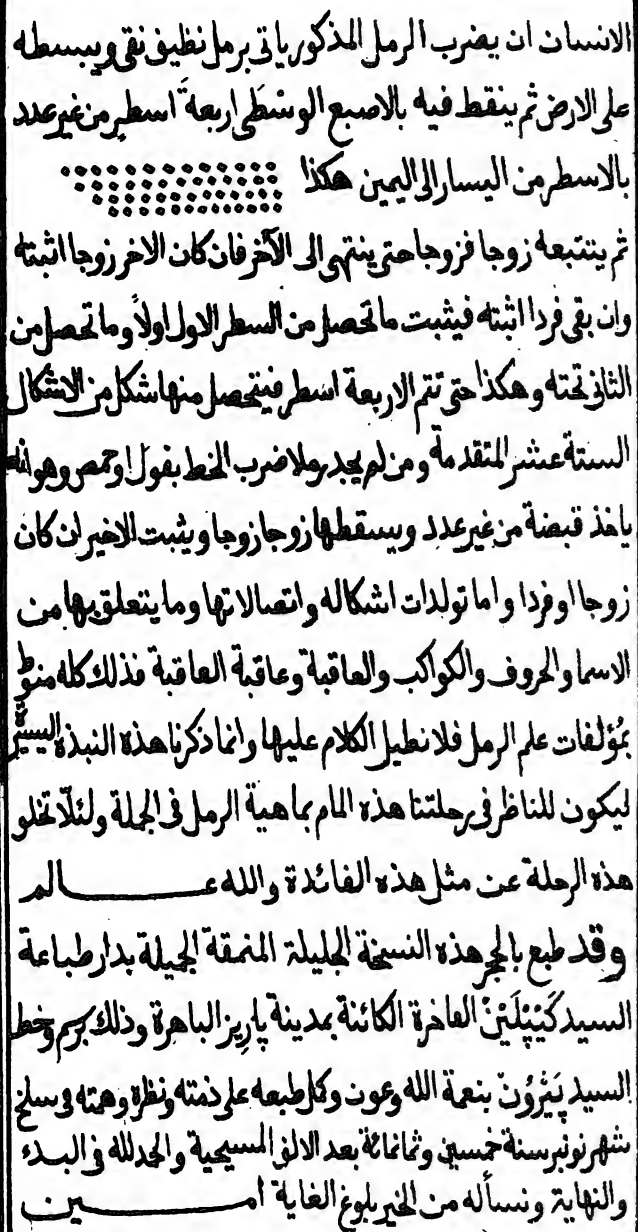 الانسان ان يضرب الرمل المذكور ياتى برمل نظيف نقى ويبسطه
على الارض ثم ينقط فيه بالاصبع الوسْطَى اربعةَ اسطر من غير عدد
بالاسطر من اليسار الى اليمين هكذا
ثم يتتبعه زوجا فزوجا حتى ينتهى الى الآخر فان كان الاخر زوجا اثبته
وان بقى فردا اثبته فيثبت ما تحصل من السطر الاول اولاً وما تحصل من
الثانى تحته وهكذا حتى تتم الاربعة اسطر فيتحصل منها شكل من الاشكال
الستة عشر المتقدمة ومن لم يجد رملا ضرب الخط بفول او حمص وهو انه
ياخذ قبضة من غير عدد ويسقطها زوجا زوجا ويثبت الاخير ان كان
زوجا او فردا واما تولدات اشكاله واتصالاتها وما يتعلق بها من
الاسما والحروف والكواكب والعاقبة وعاقبة العاقبة فذلك كله منوط
بمُؤلفات علم الرمل فلا نطيل الكلام عليها وانما ذكرنا هذه النبذة اليسيرة
ليكون للناظر فى رحلتنا هذه المام بماهية الرمل فى الجملة ولئلّا تخلو
هذه الرحلة عن مثل هذه الفائدة والله عـــــالم
وقد طبع بالحجر هذه النسخة الجليلة المنمقة الجميلة بدار طباعة
السيد كَيْپْلَيْنْ الفاخرة الكائنة بمدينة پاريز الباهرة وذلك برسم وخط
السيد پَيْرُونْ بنعمة الله وعون وكمل طبعه على ذمته ونظره وهمته فى سلخ
شهر نونبر سنة خمسين وثمانمائة بعد الالف المسيحية والحمد لله فى البدء
والنهاية ونسأله من الخير بلوغ الغاية امـــــين